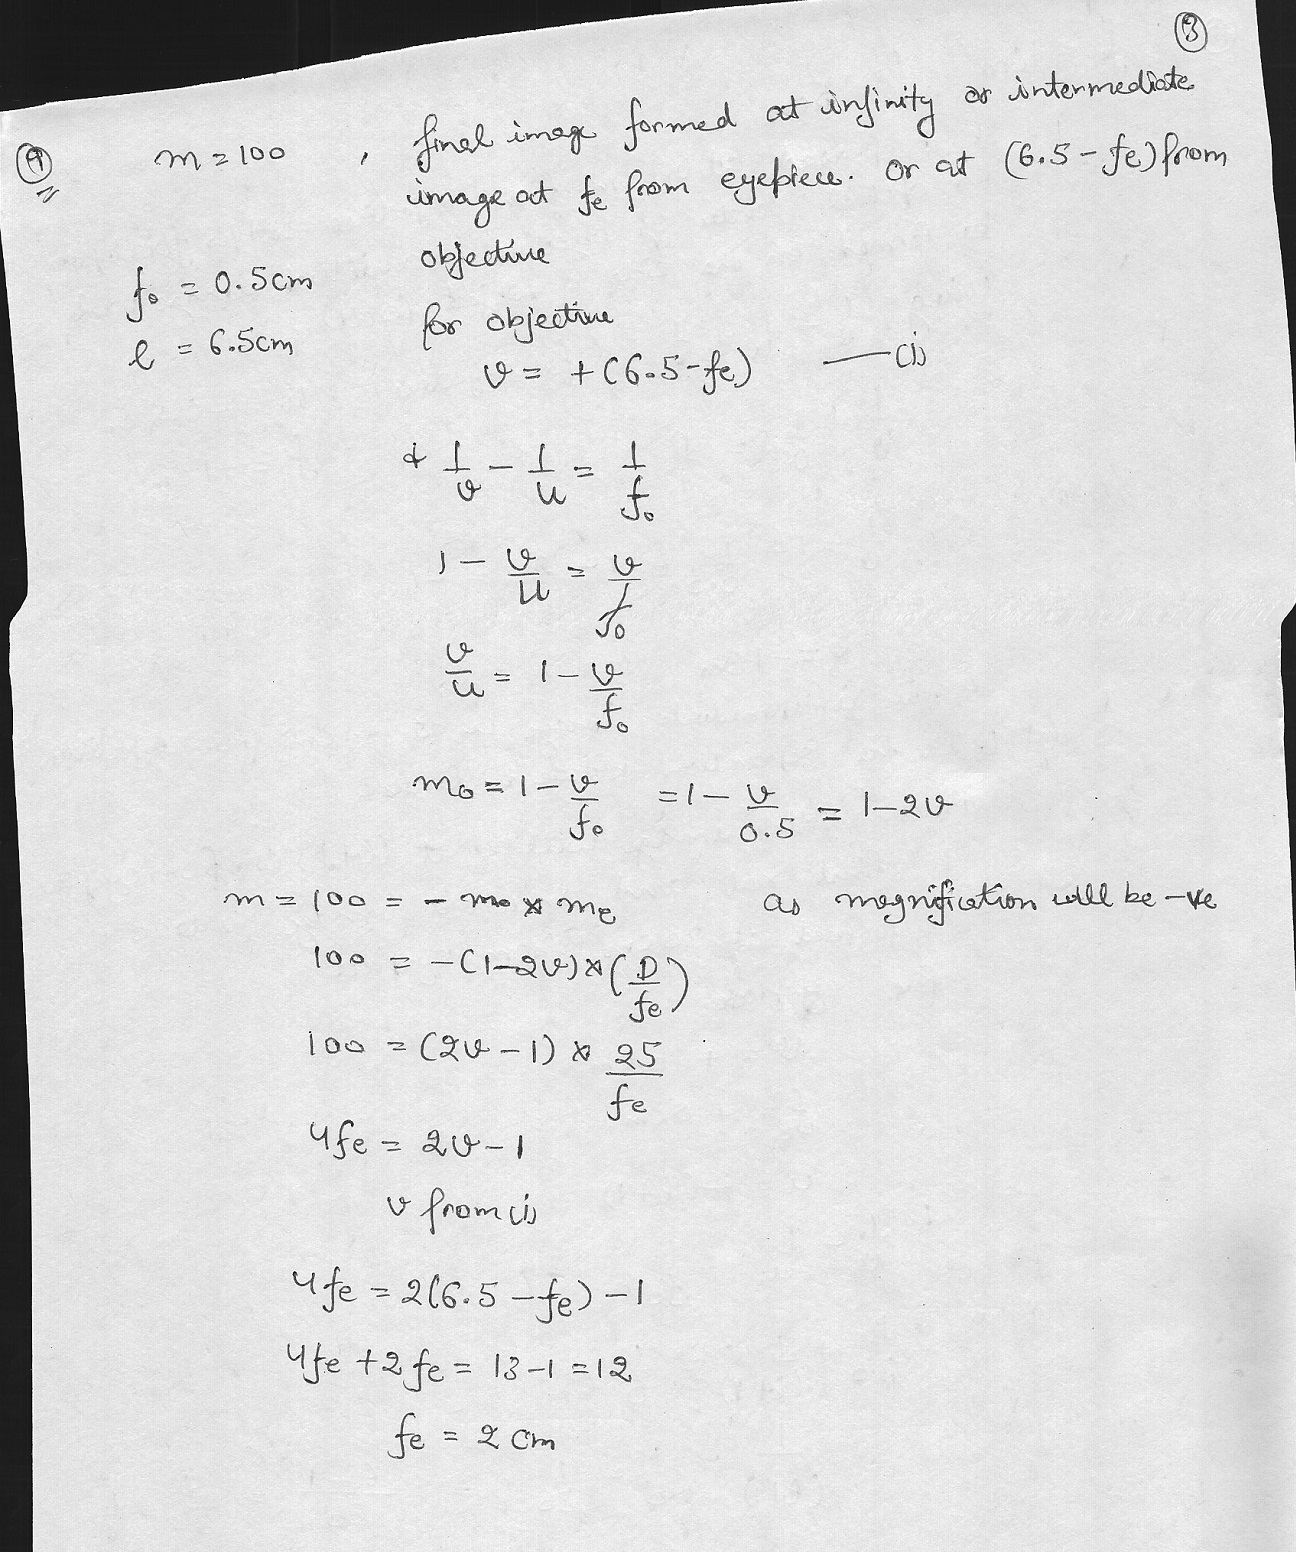 ③
④ m = 100 , final image formed at infinity or intermediate
image at fe from eyepiece. or at (6.5 - fe) from
objective
f₀ = 0.5cm
for objective
l = 6.5cm
v = +(6.5-fe) —(i)
& 1/v - 1/u = 1/f₀
1 - v/u = v/f₀
v/u = 1 - v/f₀
m₀ = 1 - v/f₀ = 1 - v/0.5 = 1-2v
m = 100 = - m₀ × me as magnification will be -ve
100 = -(1-2v) × (D/fe)
100 = (2v - 1) × 25/fe
4fe = 2v - 1
v from (i)
4fe = 2(6.5 - fe) - 1
4fe + 2fe = 13 - 1 = 12
fe = 2 cm